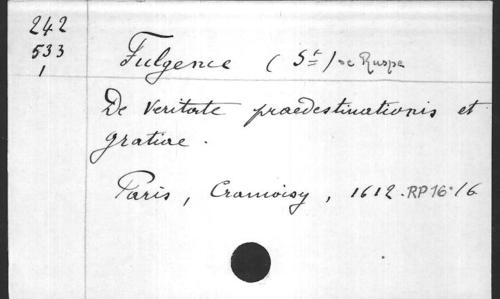 242
533
1
Fulgence (St) de Ruspe
De Veritate praedestinationis et
gratiae.
Paris, Cramoisy, 1612. RP 16°/6